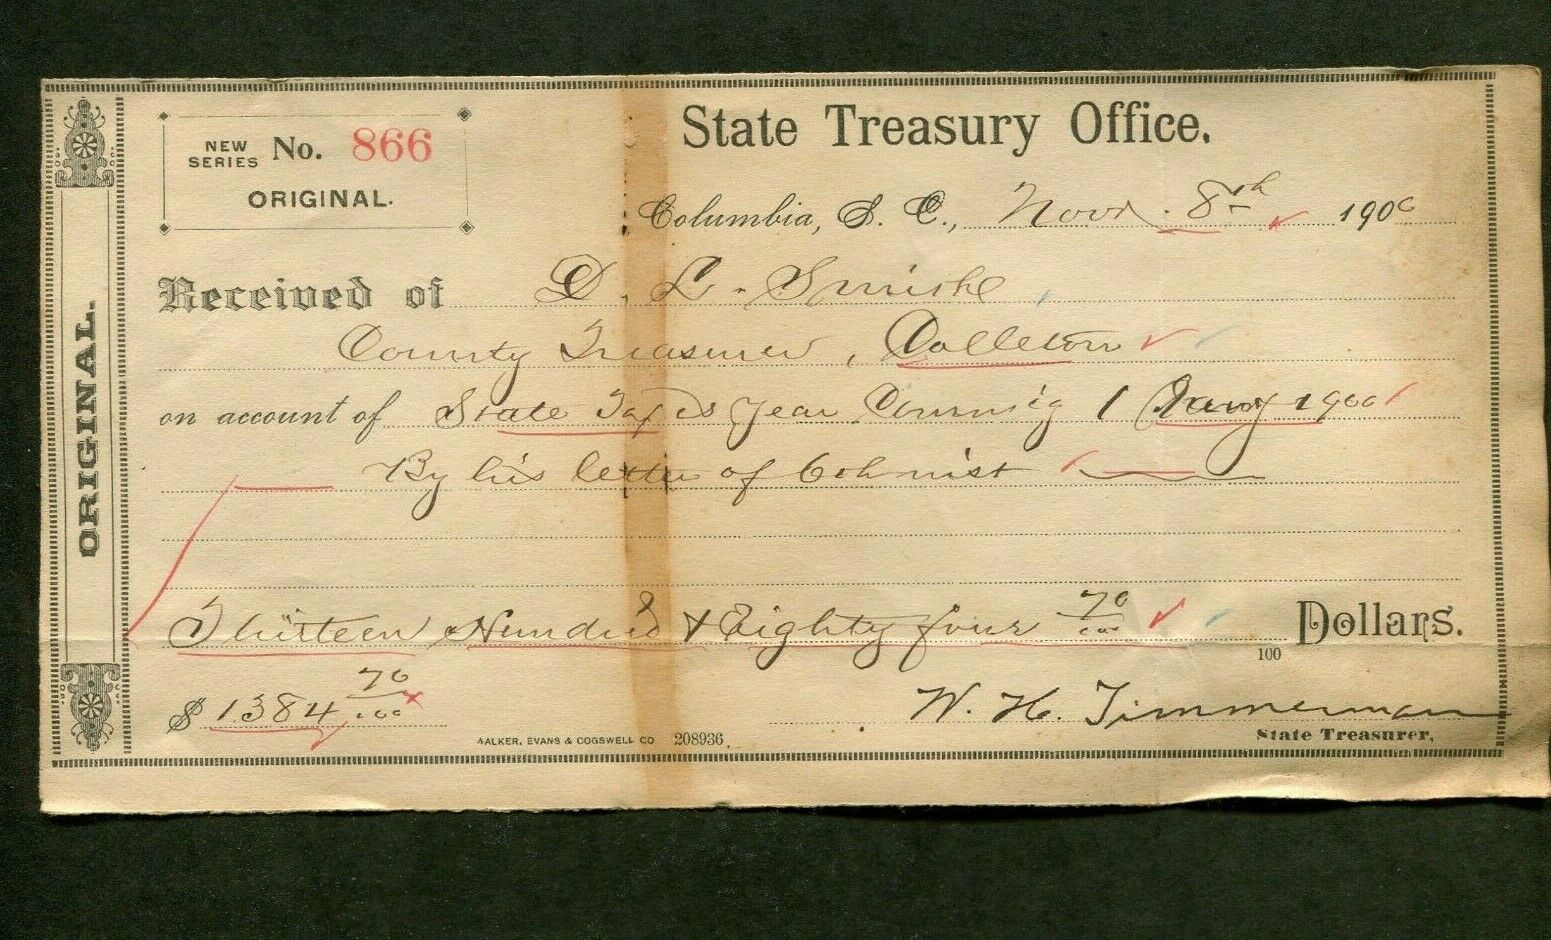 State Treasury Office.
NEW SERIES No. 866
ORIGINAL.
Columbia, S. C., Novr. 8th 1900
Received of D. L. Smith
County Treasurer, Colleton
on account of State Taxes year Comm'g 1 Jany 1900
By his letter of 6th inst
Thirteen Hundred & Eighty four 70/100 Dollars.
100
$ 1384 70/100
W. H. Timmerman
State Treasurer,
WALKER, EVANS & COGSWELL CO 208936
ORIGINAL.